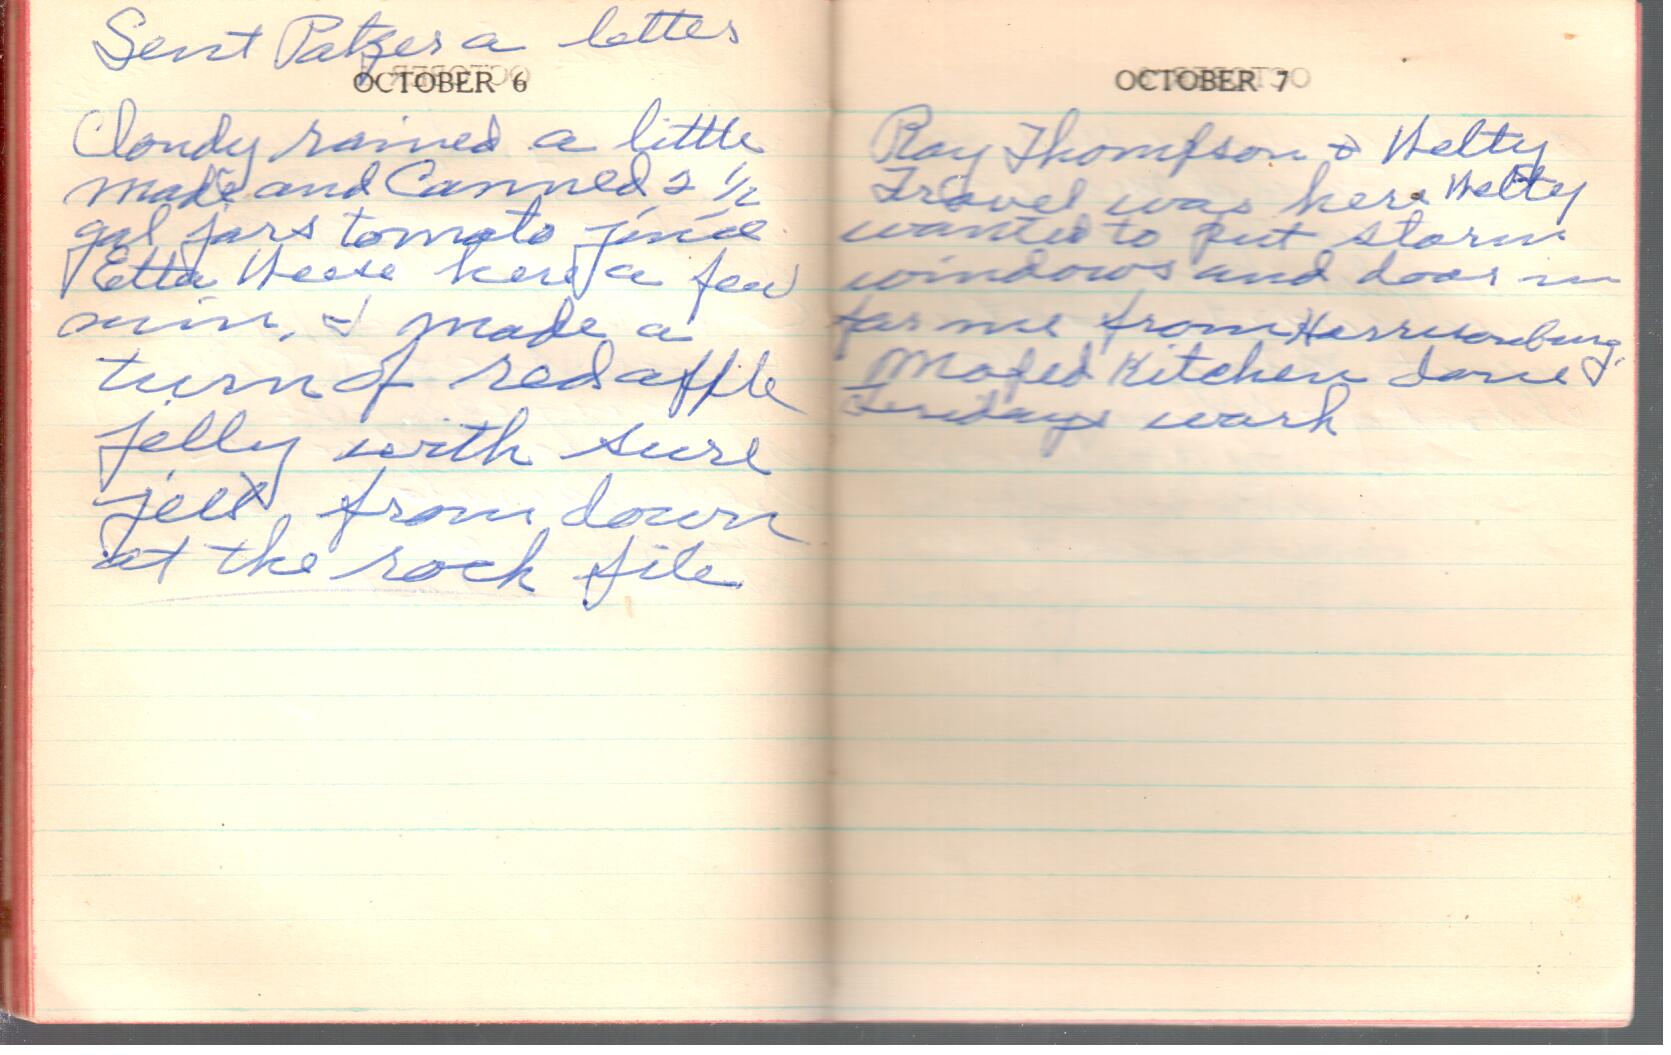 Sent Patzer a letter
OCTOBER 6
Cloudy rained a little
made and Canned 2 1/2
gal jars tomato juice
Etta Weese here a few
min, I made a
turn of red apple
jelly with sure
jell from down
at the rock pile
OCTOBER 7
Ray Thompson & Welty
Travel was here Welty
wanted to put storm
windows and doors in
for me from Harrisonburg,
Moped Kitchen done
work